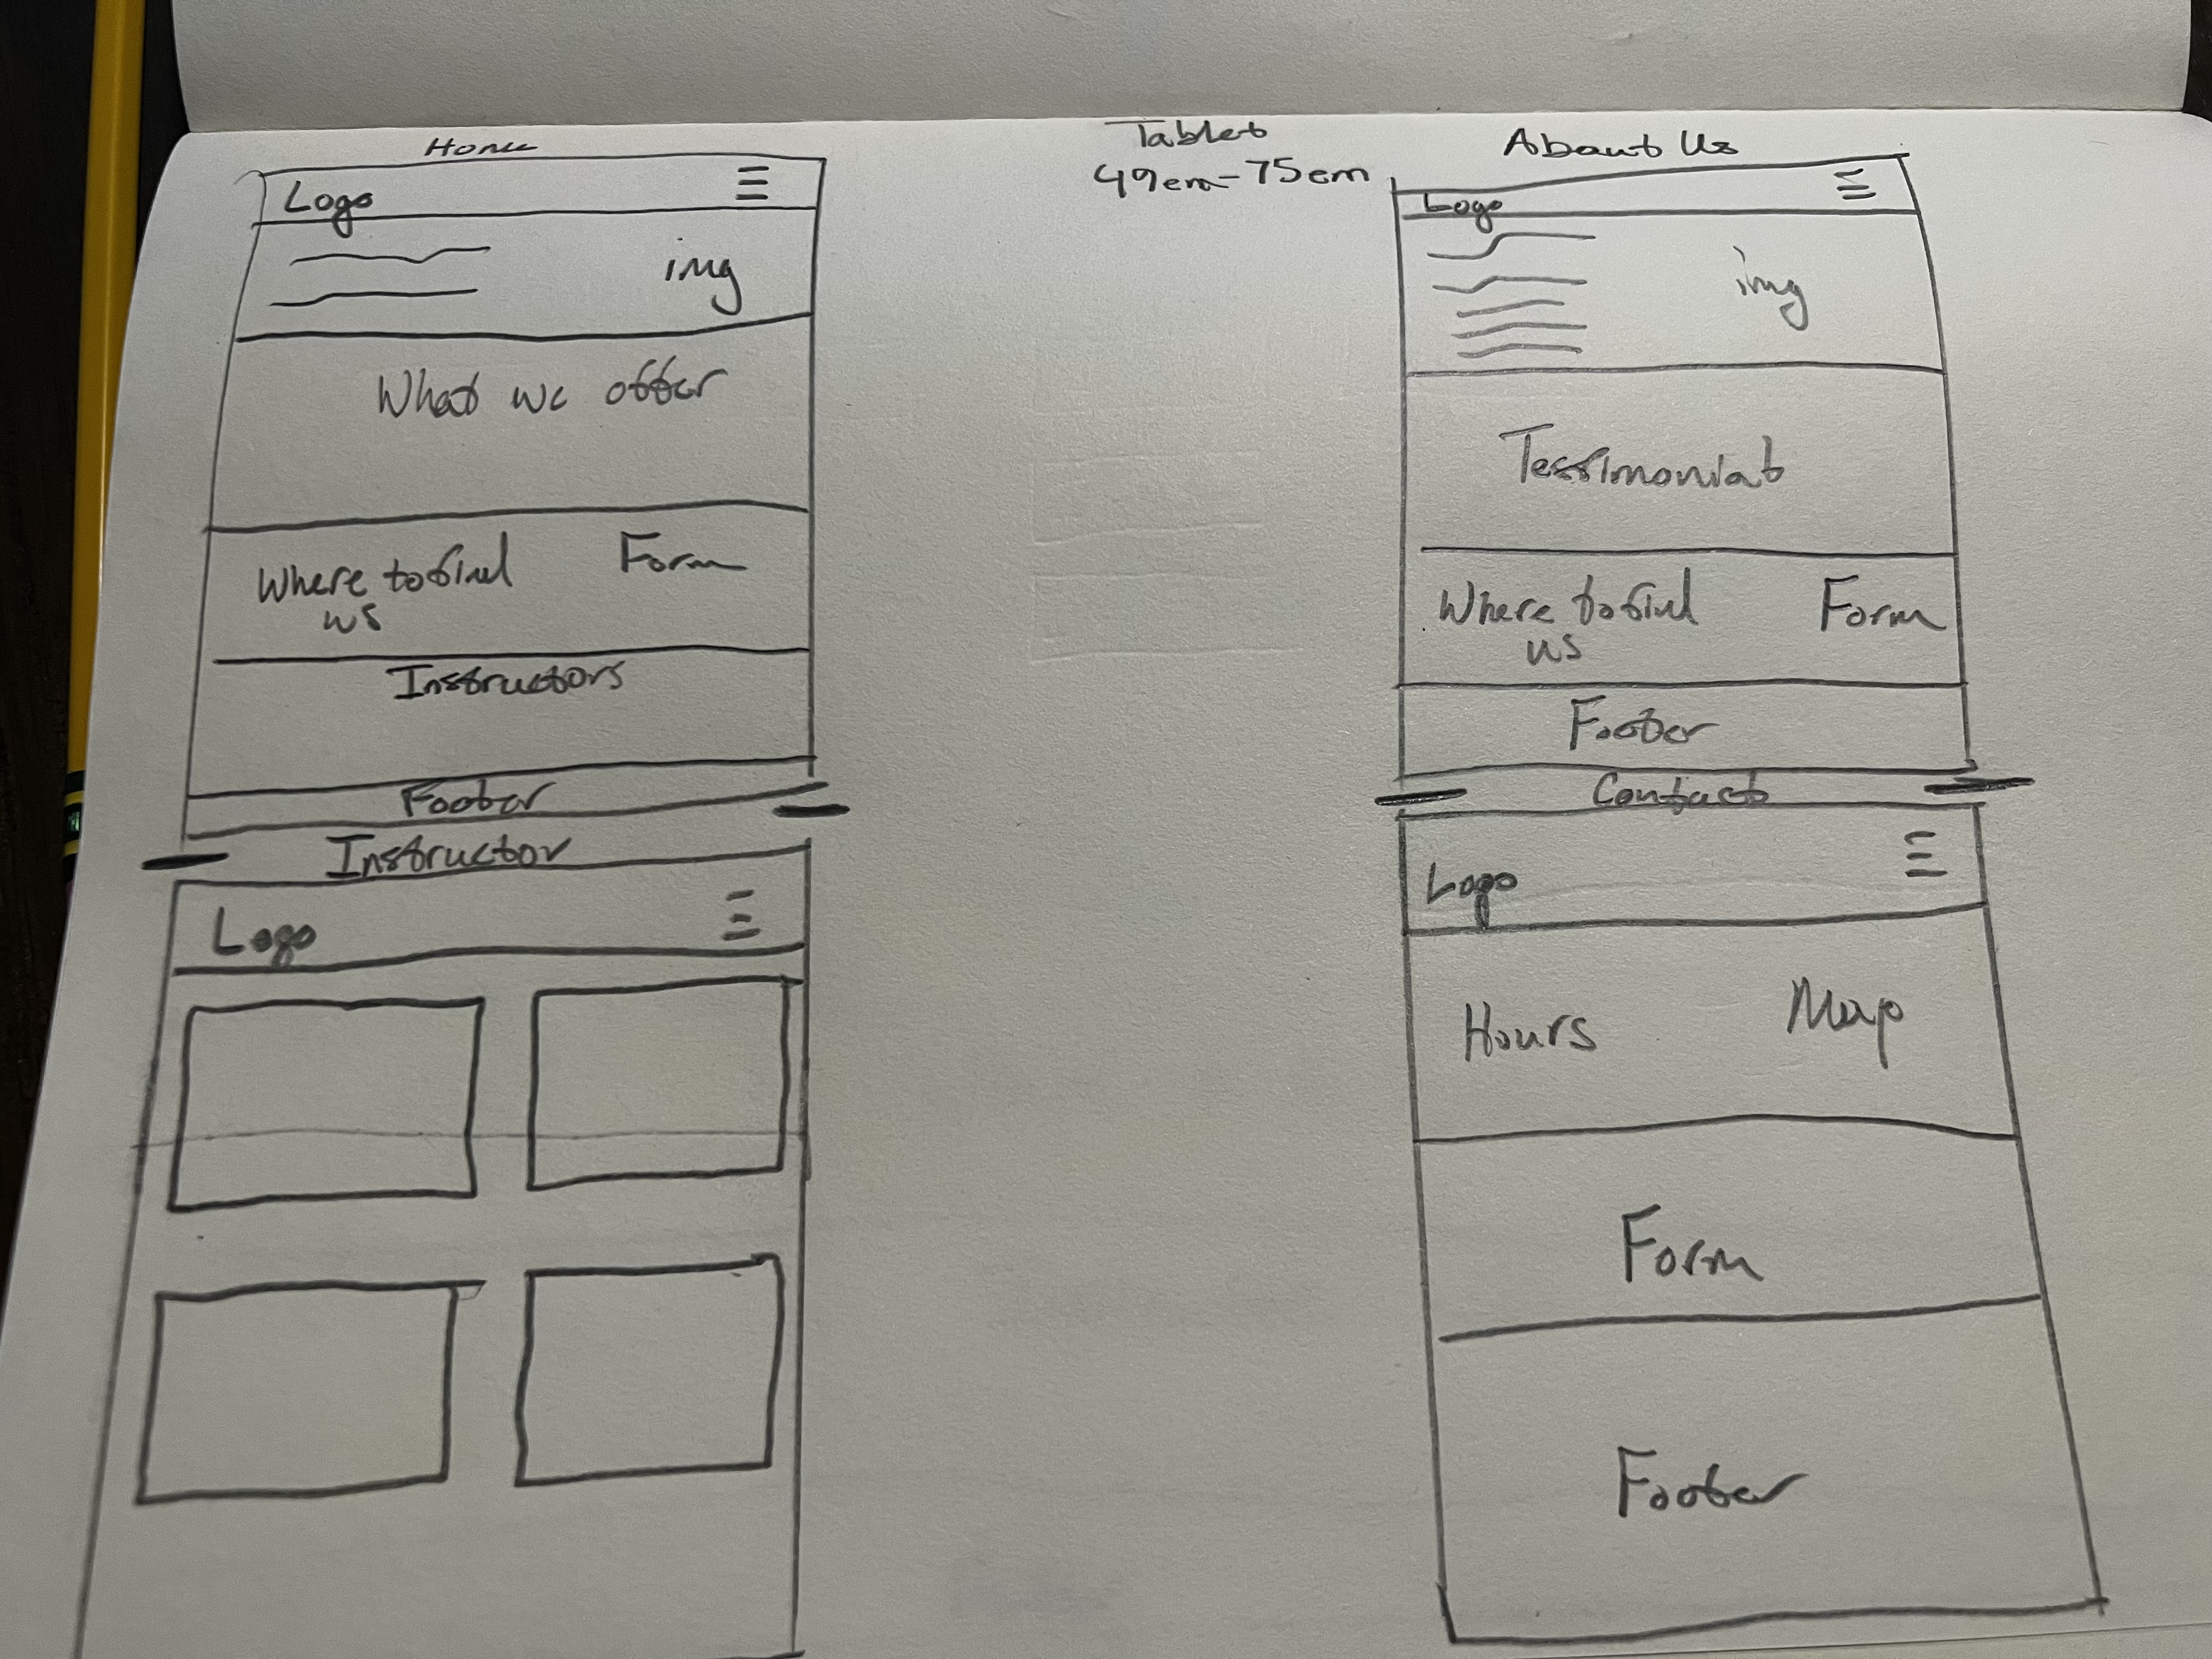 Home
Logo
img
What we offer
Where to find
us
Form
Instructors
Footer
Instructor
Logo
Tablet
49em-75em
About Us
Logo
img
Testimonial
Where to find
us
Form
Footer
Contact
Logo
Hours
Map
Form
Footer